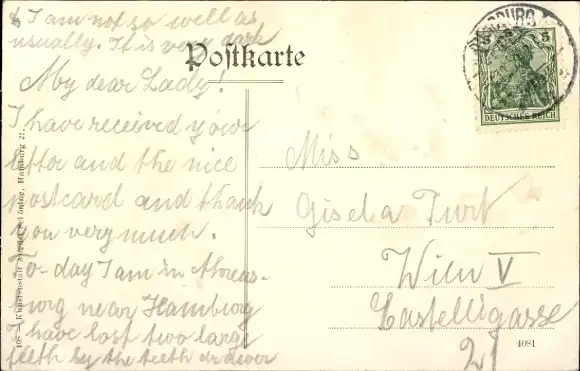 & I am not so well as
usually. It is very dark
Postkarte
My dear Lady!
I have received your
letter and the nice
postcard and thank
you very much.
To-day I am in Ahrens-
burg near Hamburg
I have lost two large
teeth by the teeth drawer
Miss
Gisela Turt
Wien V
Castelligasse
21
5
DEUTSCHES REICH
Hamburg 21.
4081